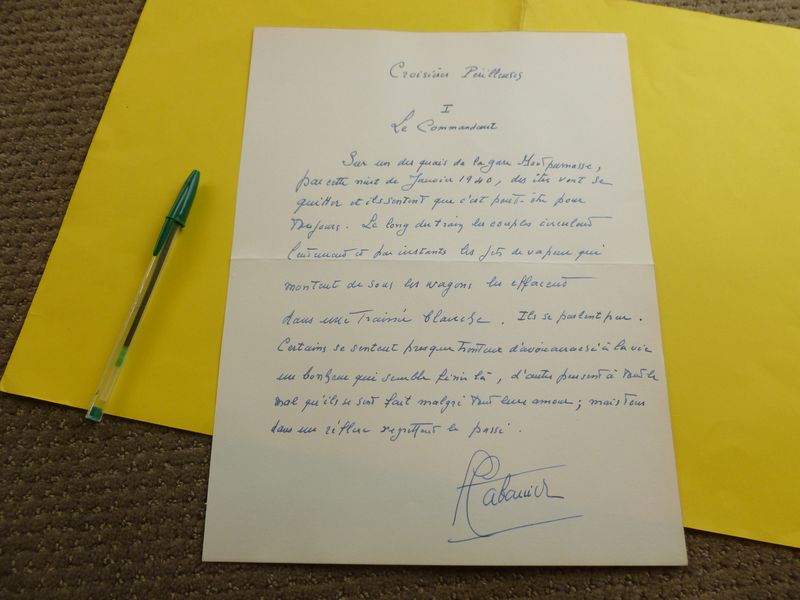 Croisières Périlleuses
I
Le Commandant
Sur un des quais de la gare Montparnasse,
par cette nuit de Janvier 1940, des êtres vont se
quitter et ils sentent que c'est peut-être pour
toujours. Le long du train les couples circulent
lentement et par instants les jets de vapeur qui
montent de sous les wagons les effacent
dans une traînée blanche. Ils se parlent peu.
Certains se sentent presque honteux d'avoir à la vie
un bonheur qui semble finir là, d'autres pensent à tout le
mal qu'ils se sont fait malgré tout leur amour; mais tous
dans un réflexe regrettent le passé.
Cabanier